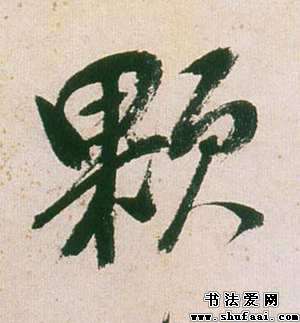 颗
书法爱网
www.shufaai.com